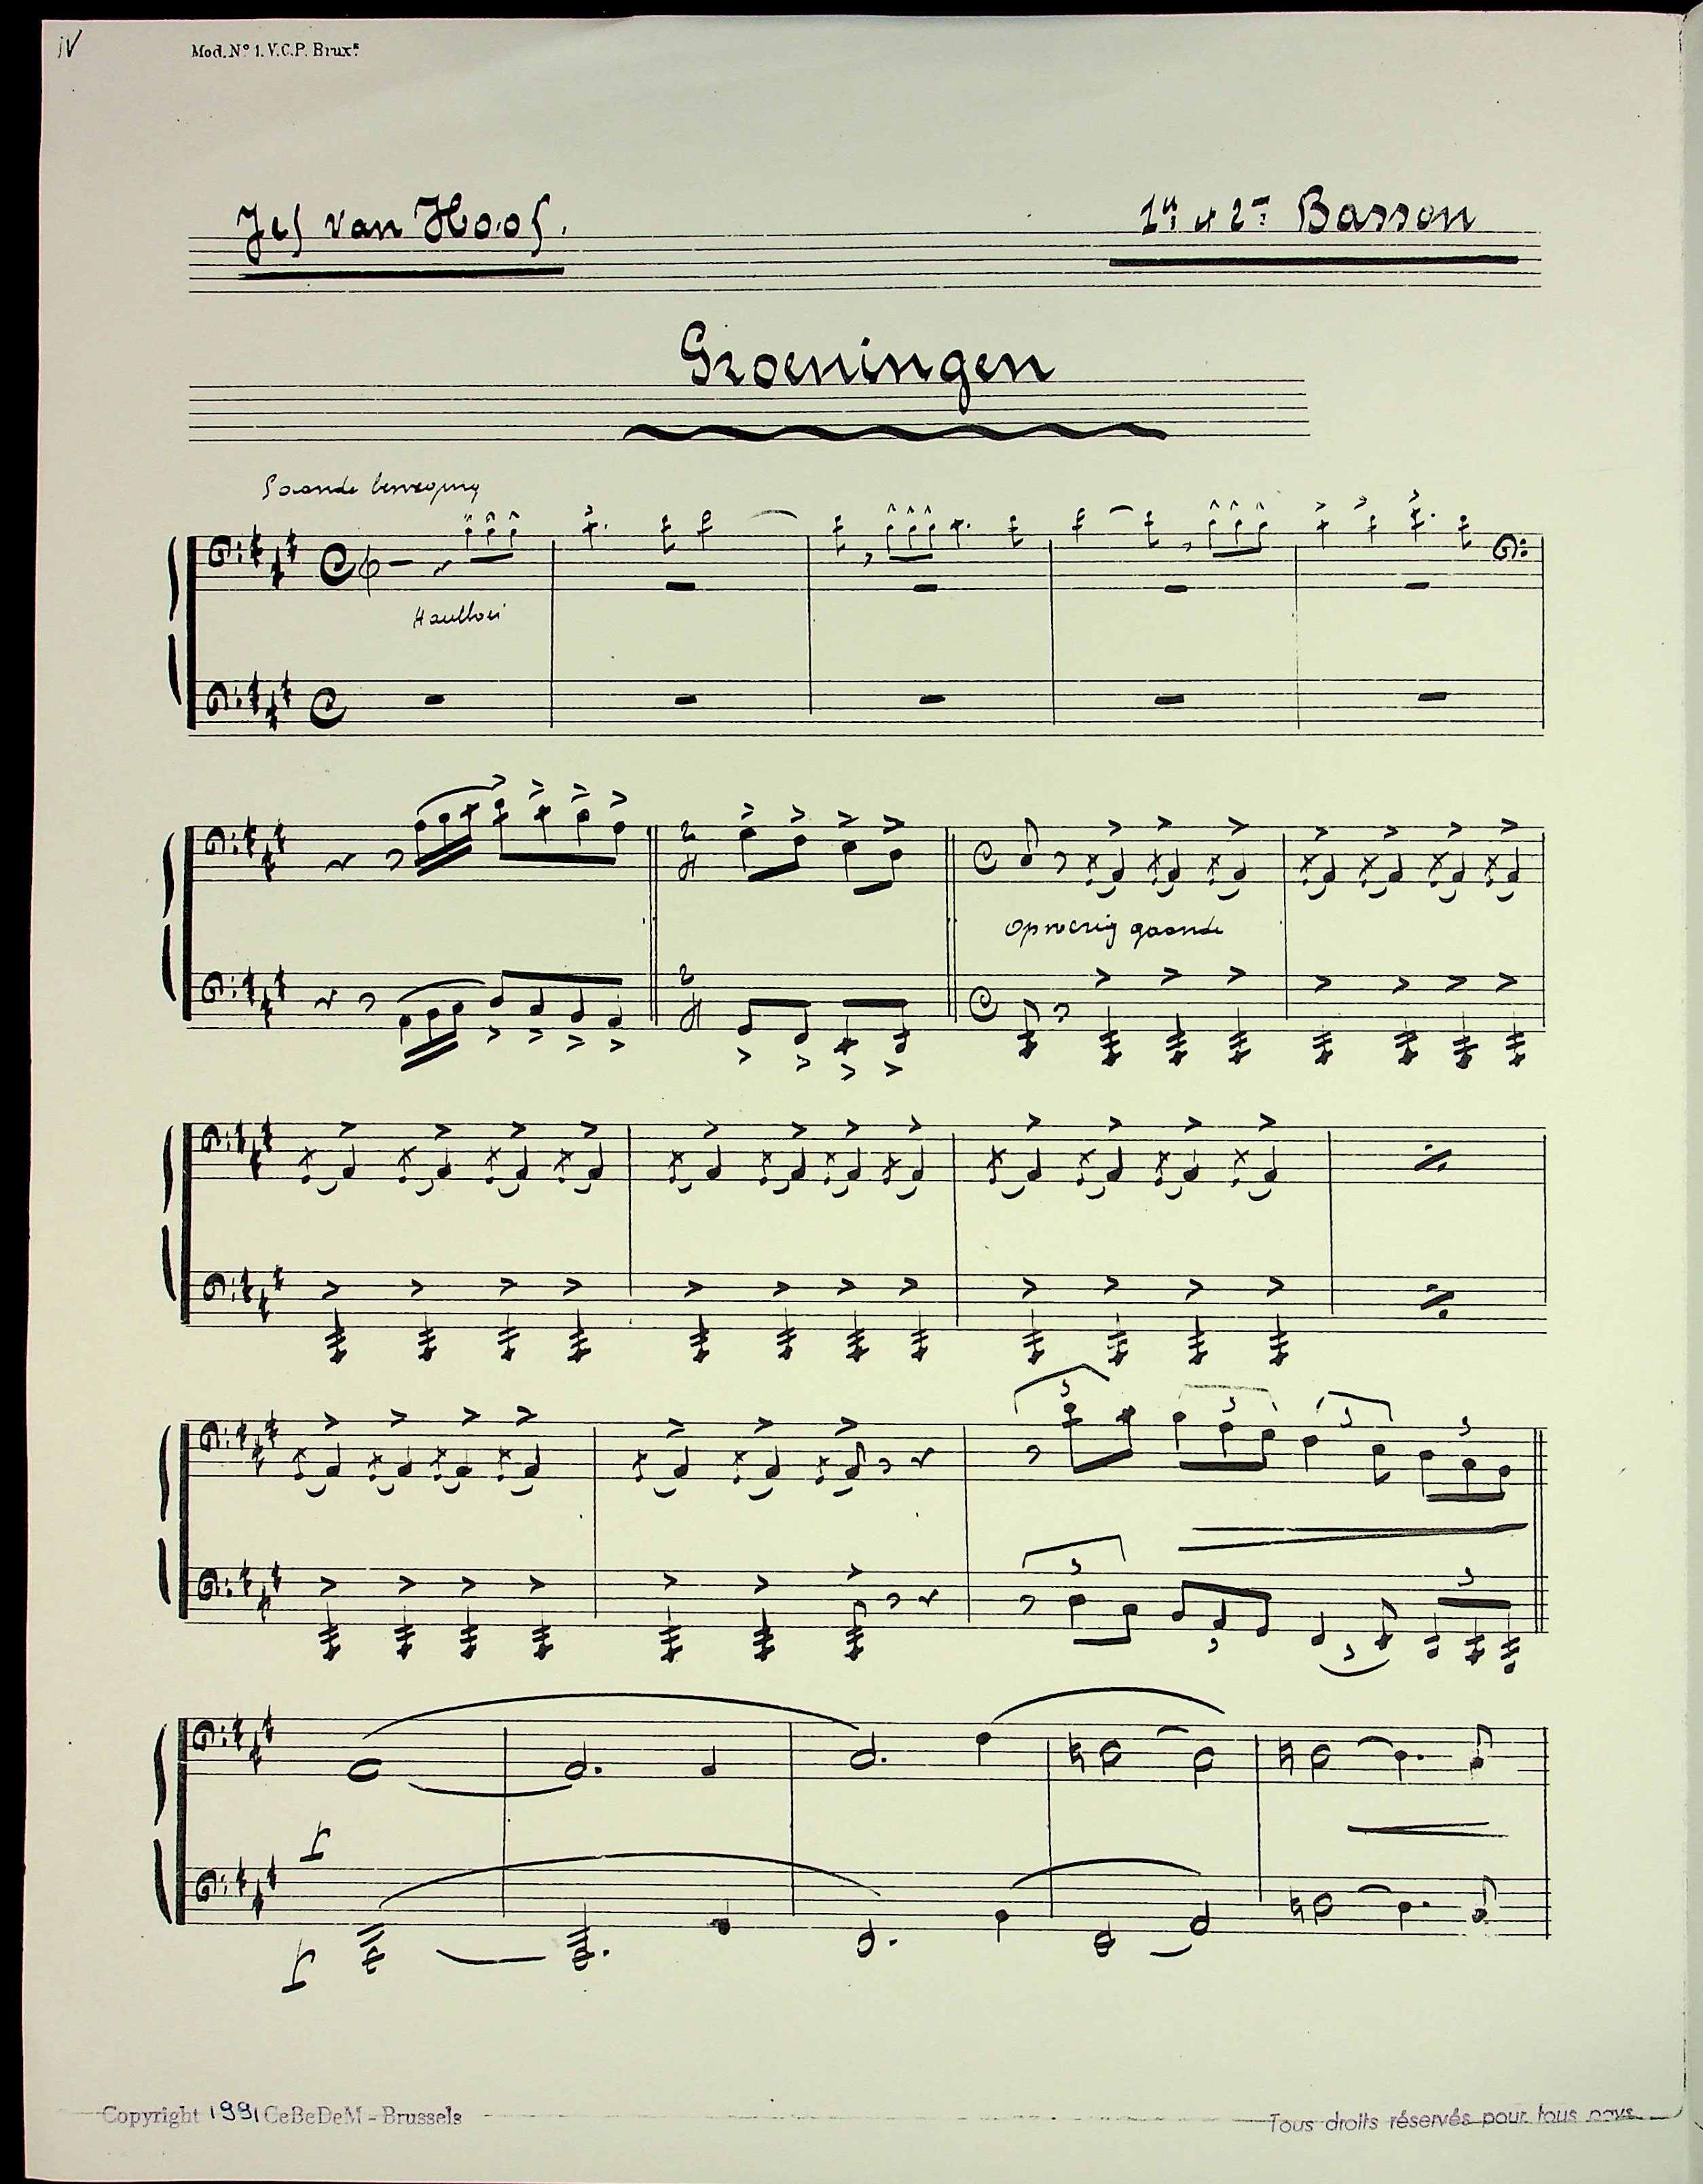 IV
Mod. Nº 1. V.C.P. Bruxˢ
Jef van Hoof.
1ᵉ & 2ᵉ Basson
Groeningen
Gaande beweging
Hautboi
2
4
2
4
Oproerig gaande
3 3 3 3
3 3 3 3
f
f
Copyright 1991 CeBeDeM - Brussels
Tous droits réservés pour tous pays